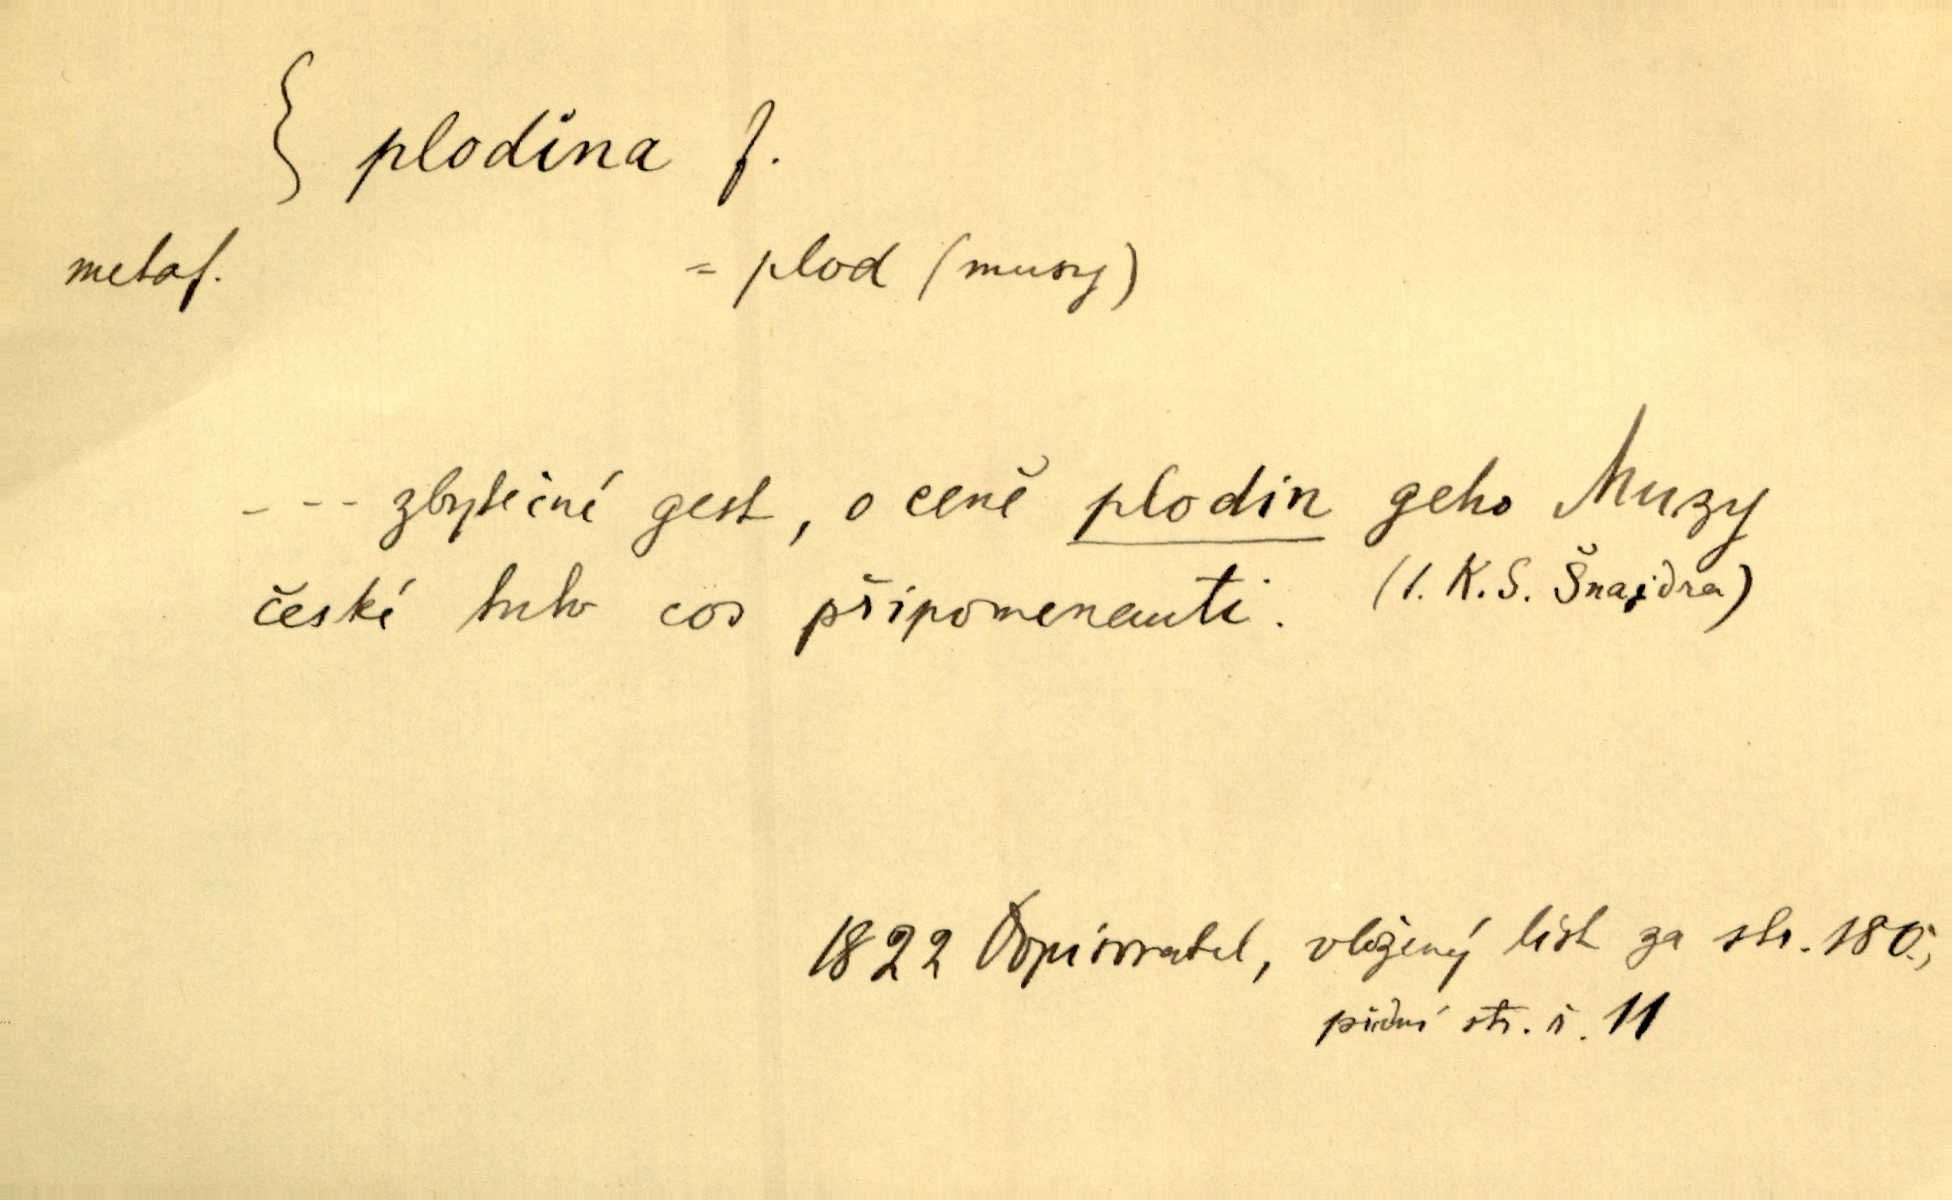 { plodina f.
metaf. = plod (musy)
- - - zbytečné gest, o ceně plodin geho Muzy
české tuto cos připomenauti. (1. K. S. Šnajdra)
1822 Dopisovatel, vložený list za str. 180.,
přední str. č. 11